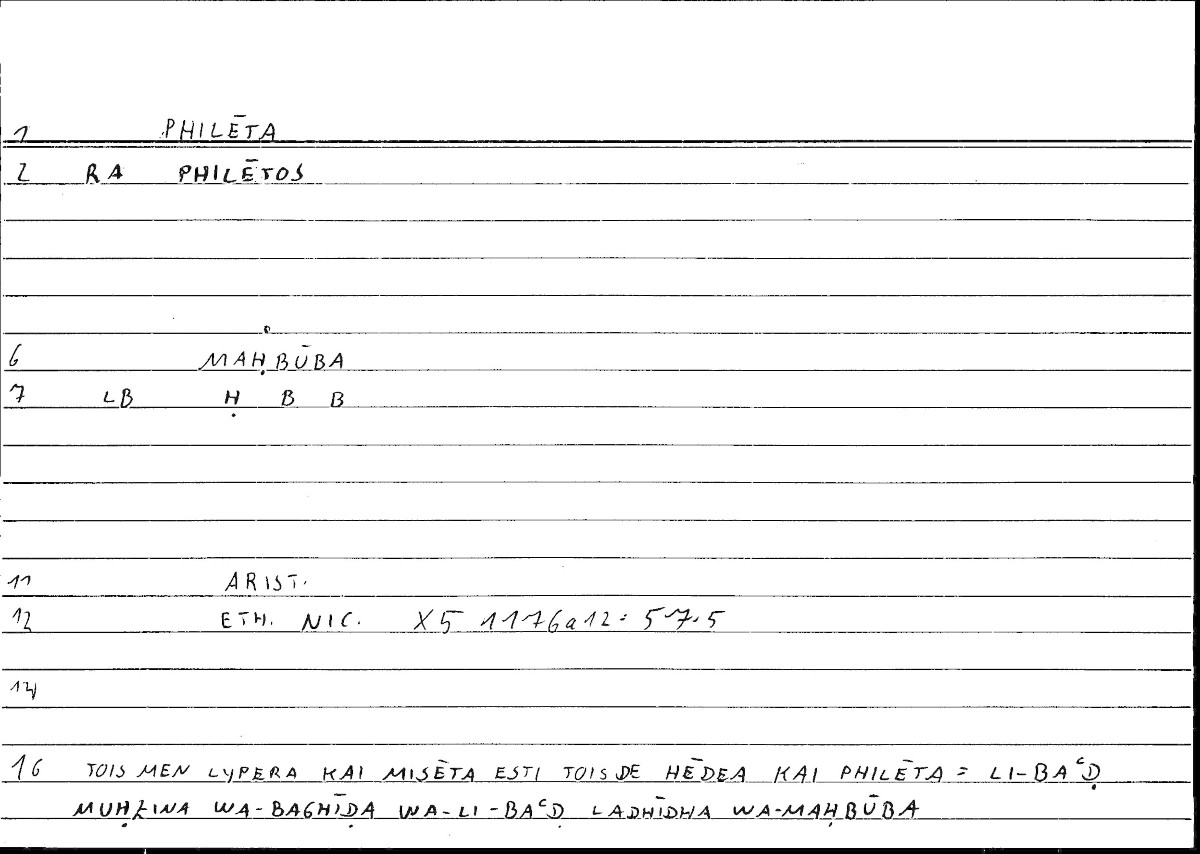 1 PHILĒTA
2 RA PHILĒTOS
6 MAḤBŪBA
7 LB Ḥ B B
11 ARIST.
12 ETH. NIC. X5 1176a12: 57.5
14
16 TOIS MEN LYPERA KAI MISĒTA ESTI TOIS DE HĒDEA KAI PHILĒTA = LI-BAᶜḌ
MUḤZINA WA-BAGHĪḌA WA-LI-BAᶜḌ LADHĪDHA WA-MAḤBŪBA